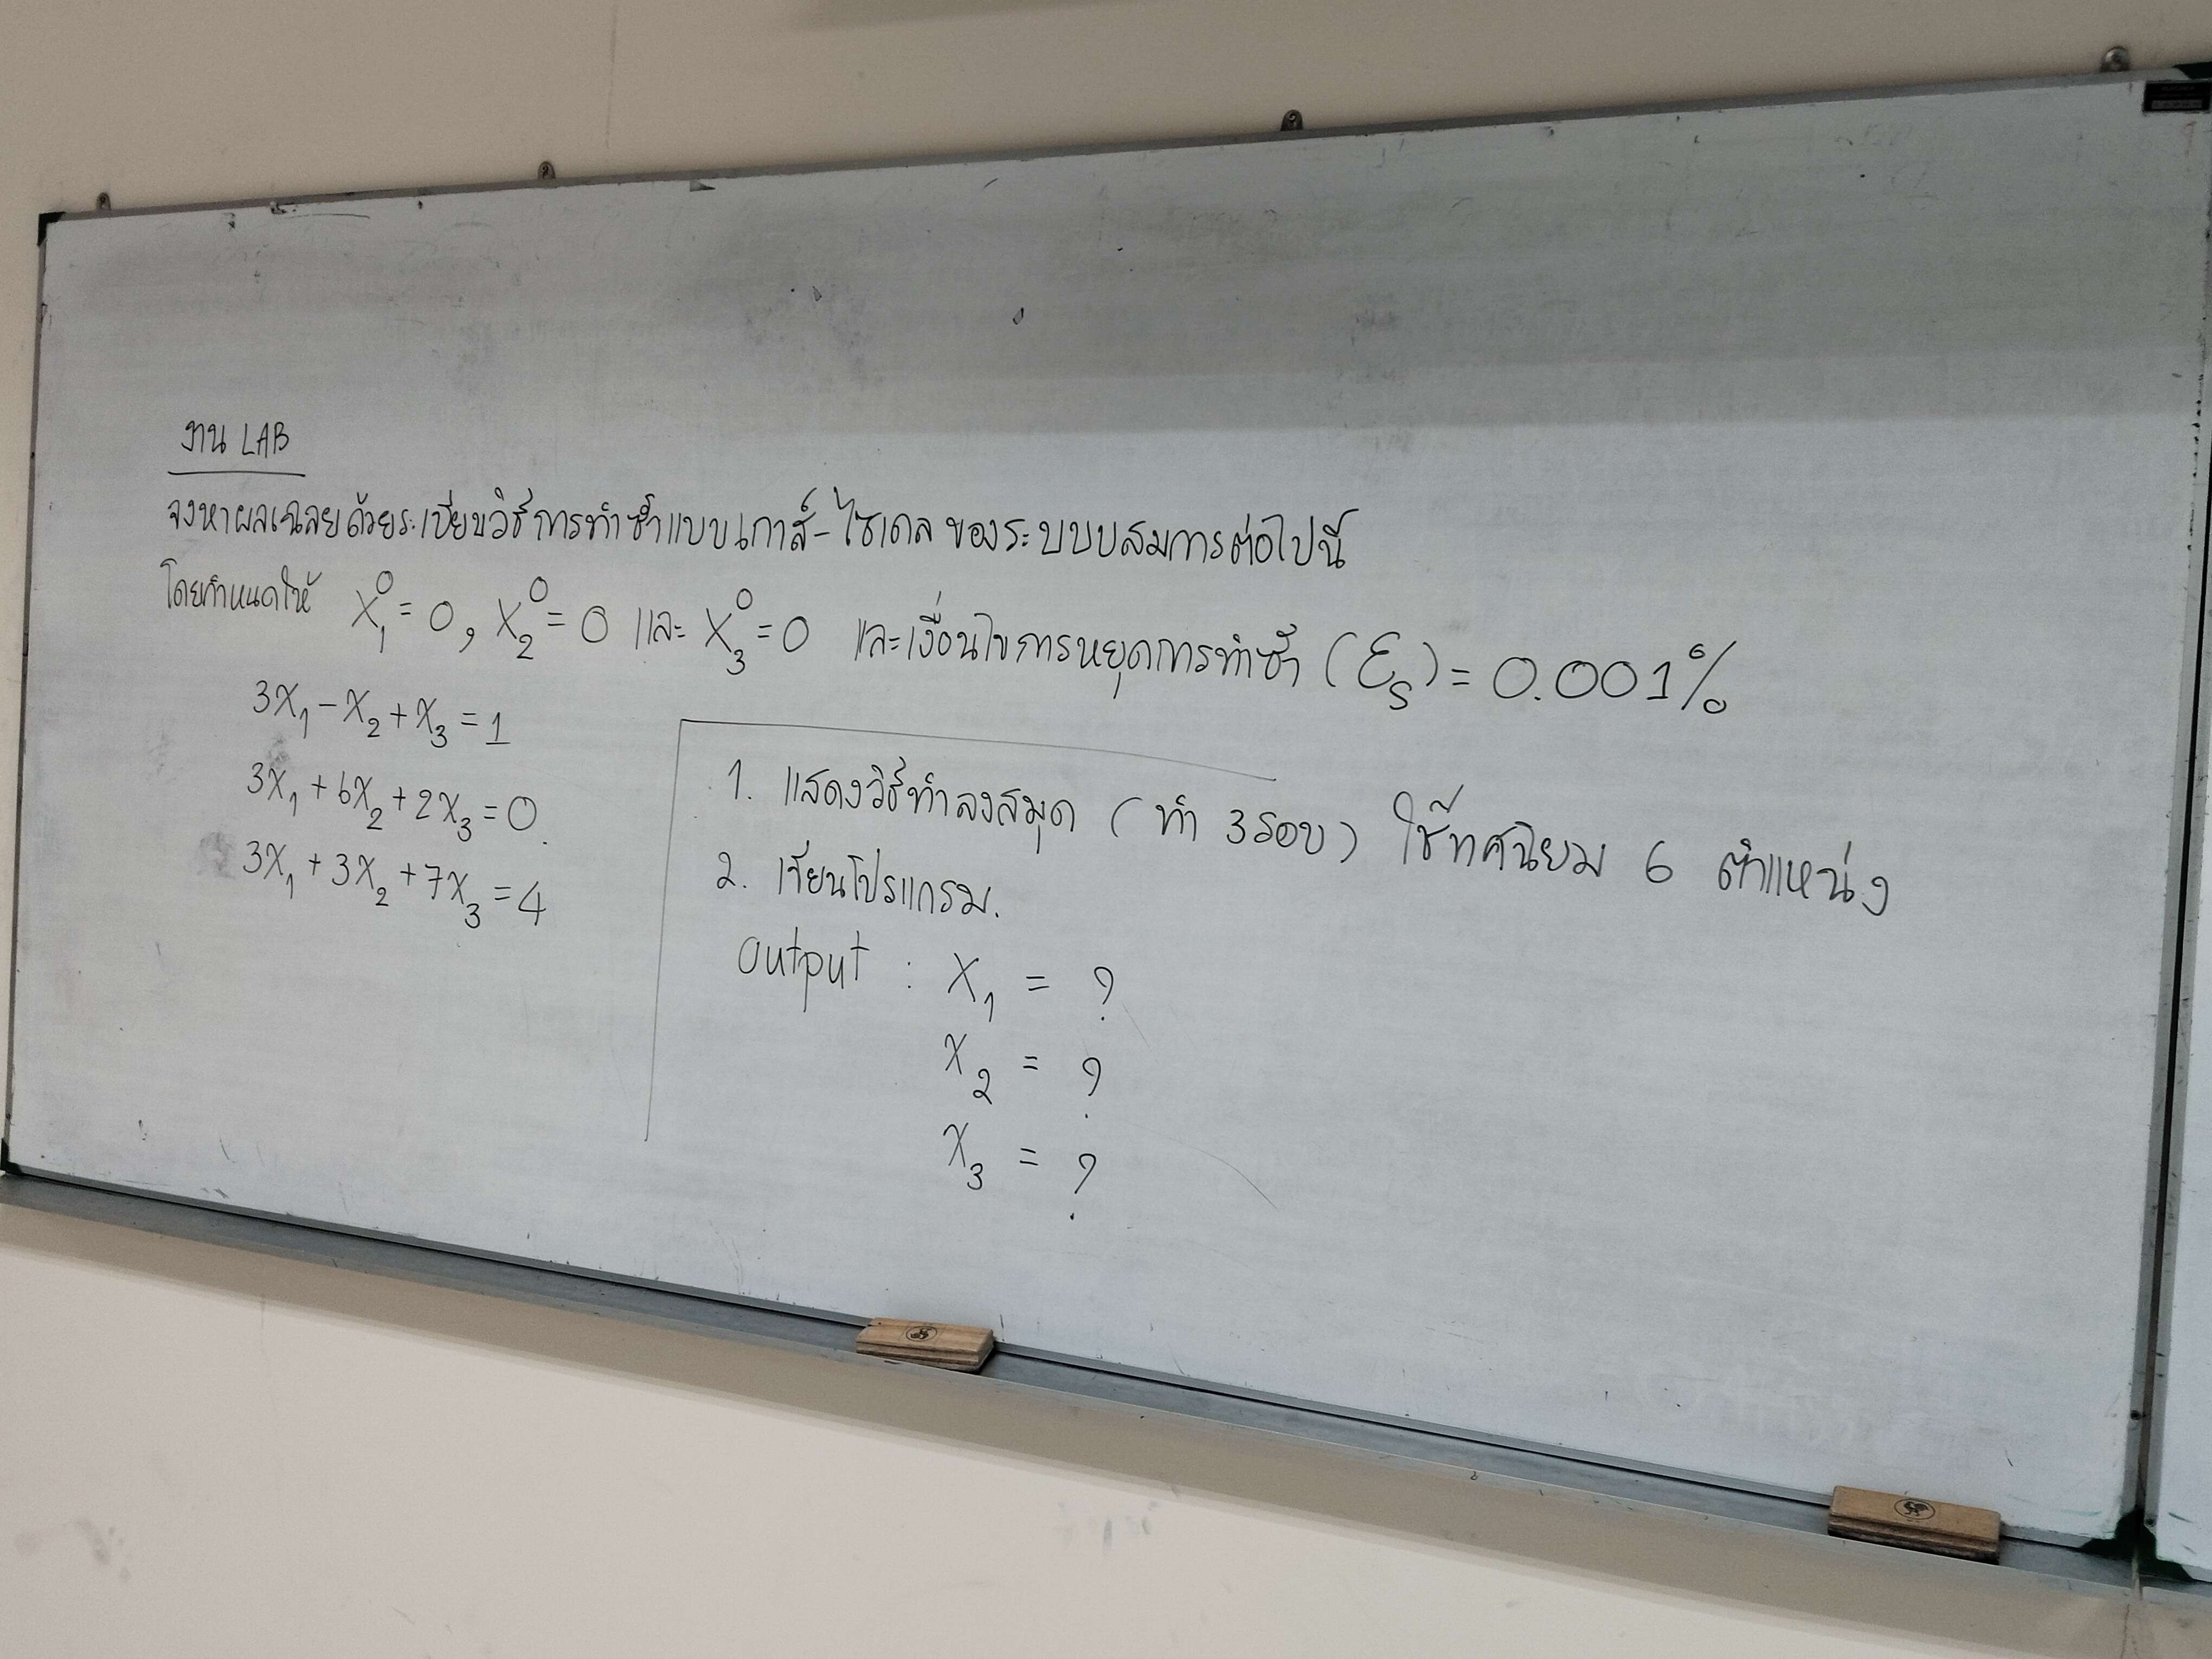 งาน LAB
จงหาผลเฉลยด้วยระเบียบวิธีการทำซ้ำแบบเกาส์-ไซเดล ของระบบบสมการต่อไปนี้
โดยกำหนดให้ x₁⁰ = 0, x₂⁰ = 0 และ x₃⁰ = 0 และเงื่อนไขการหยุดการทำซ้ำ (εₛ) = 0.001%
3x₁ - x₂ + x₃ = 1
3x₁ + 6x₂ + 2x₃ = 0.
3x₁ + 3x₂ + 7x₃ = 4
1. แสดงวิธีทำลงสมุด (ทำ 3 รอบ) ใช้ทศนิยม 6 ตำแหน่ง
2. เขียนโปรแกรม.
Output : x₁ = ?
x₂ = ?
x₃ = ?